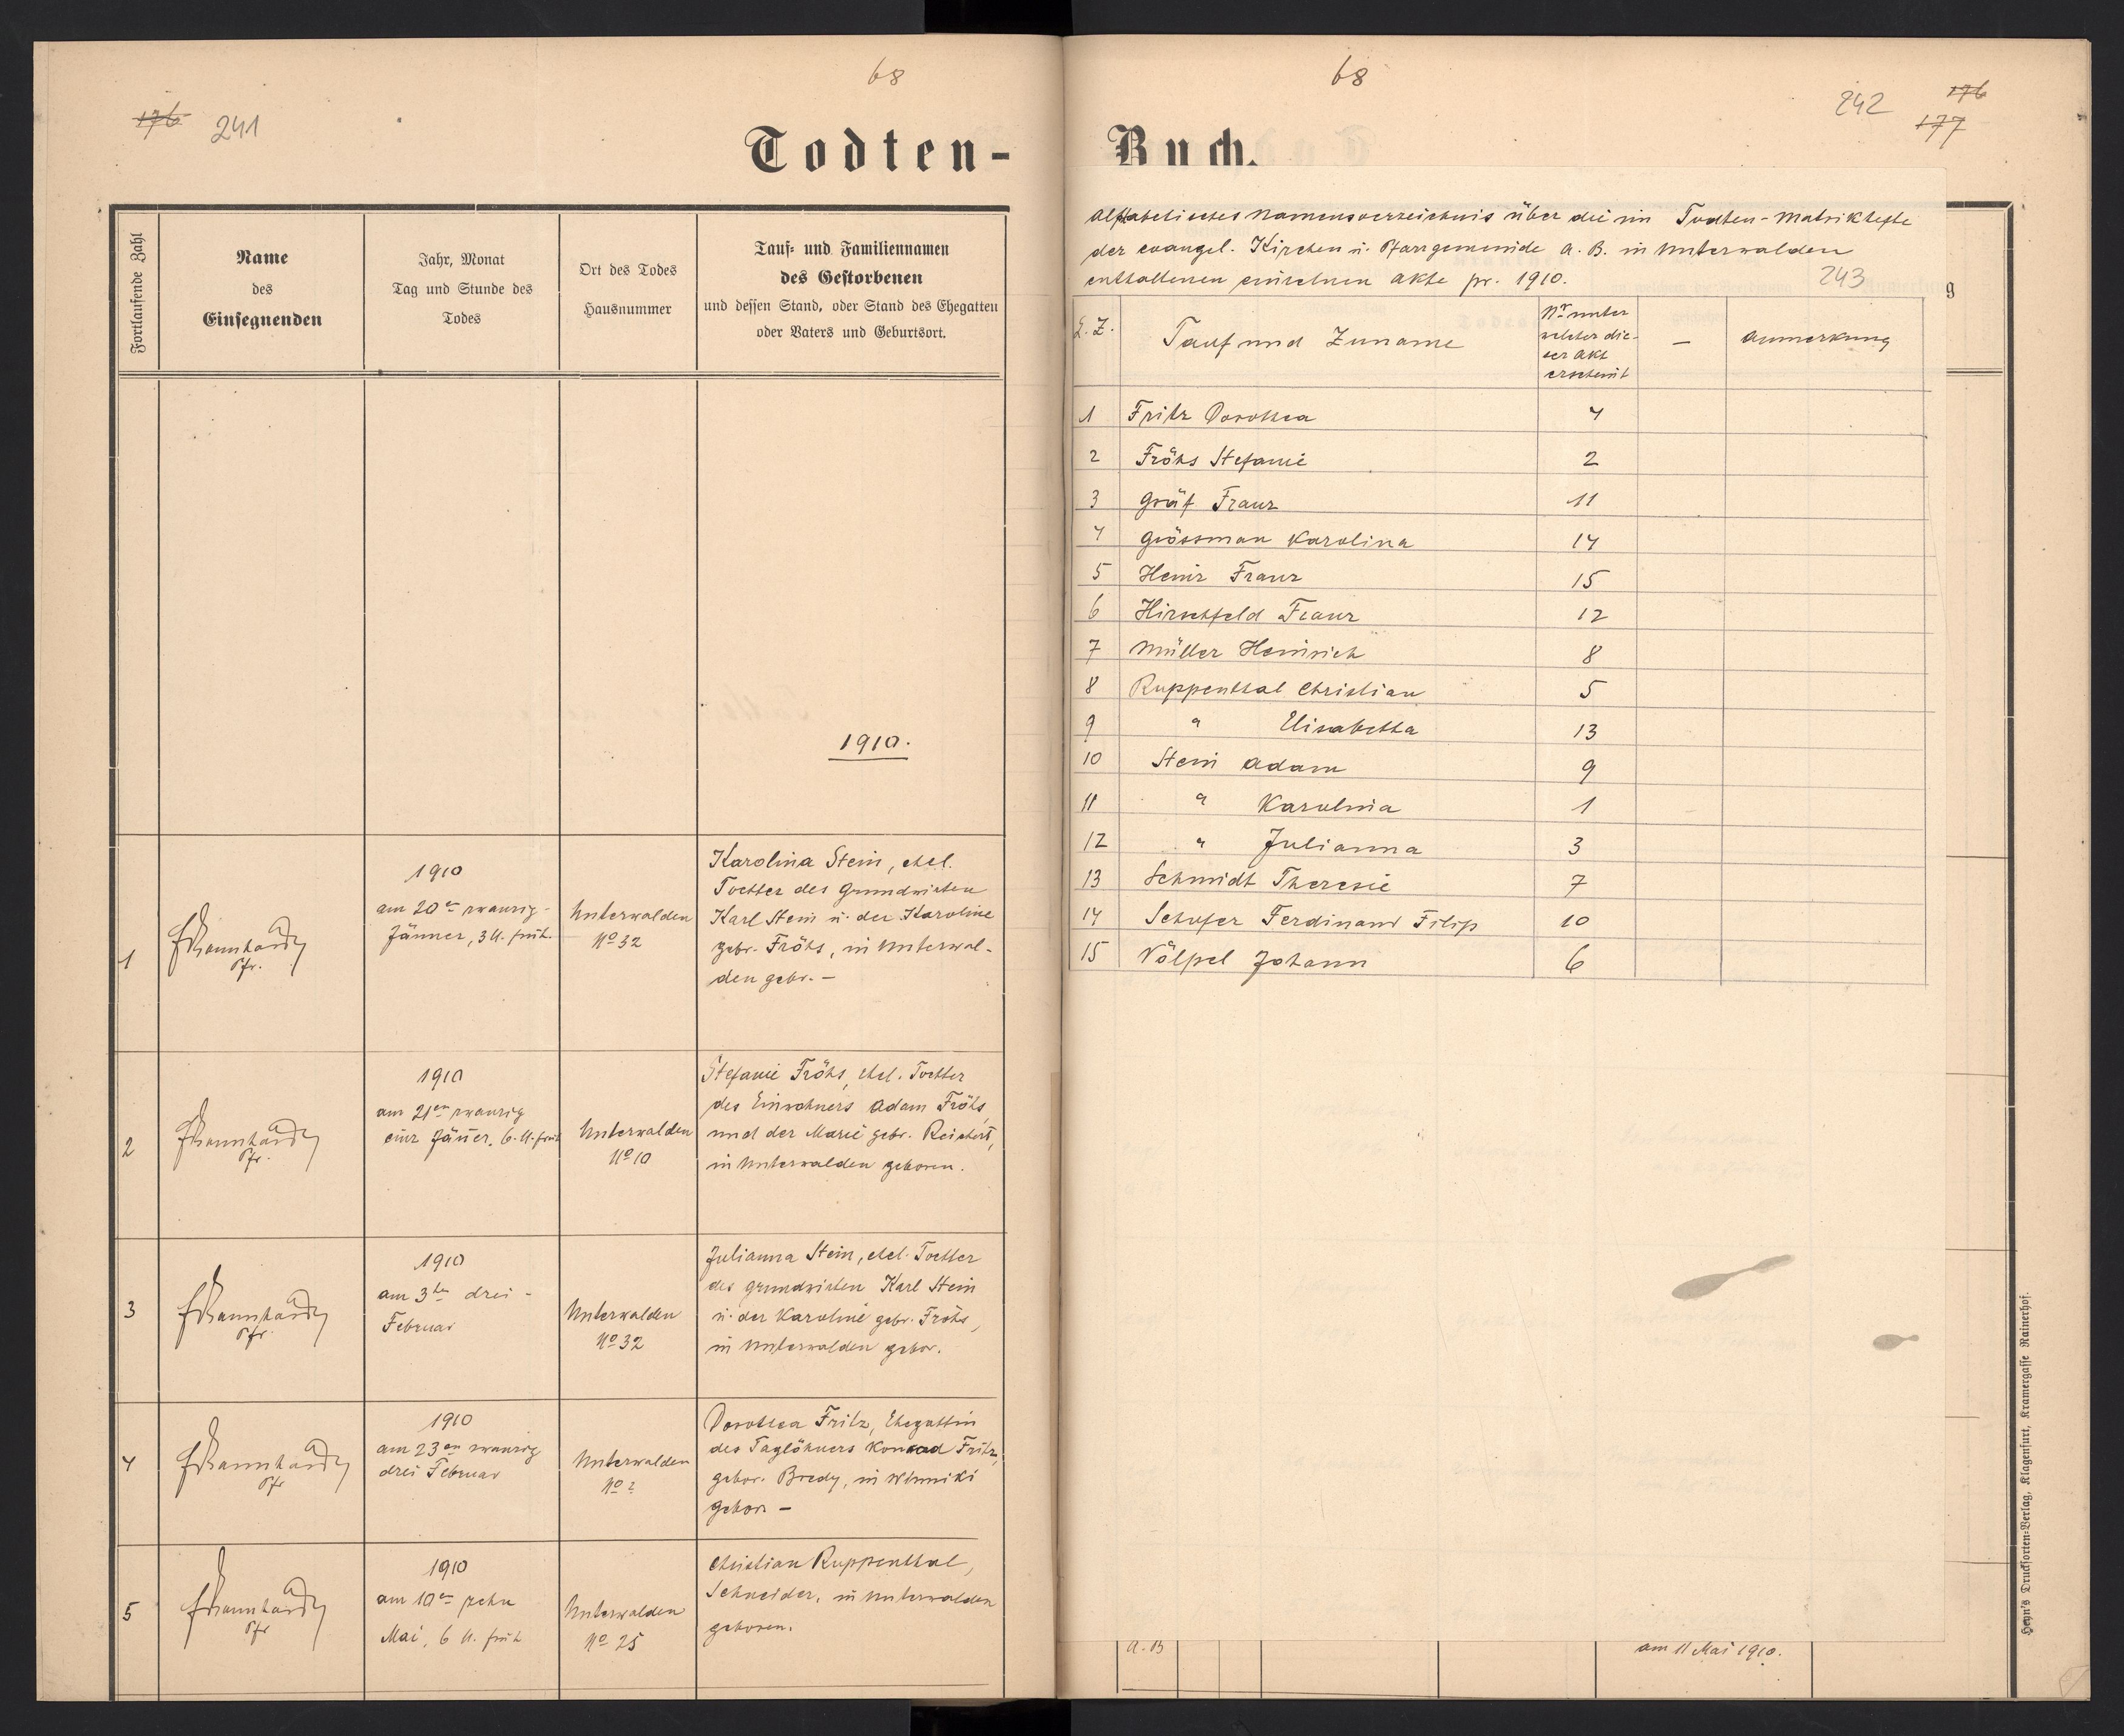 68
176 241
Todten-
Fortlaufende Zahl
Name
des
Einsegnenden
Jahr, Monat
Tag und Stunde des
Todes
Ort des Todes
Hausnummer
Tauf- und Familiennamen
des Gestorbenen
und dessen Stand, oder Stand des Ehegatten
oder Vaters und Geburtsort.
1910.
1
Pfr.
1910
am 20en zwanzig-
Jänner, 3 U. früh.
Unterwalden
No 32
Karolina Stein, ehel.
Tochter des Grundwirten
Karl Stein u. der Karoline
gebr. Fröhs, in Unterwal-
den gebr. —
2
Pfr.
1910
am 21en zwanzig
einz Jäner. 6. U. früh
Unterwalden
No 10
Stefanie Fröhs, ehel. Tochter
des Einwohners Adam Fröhs,
und der Marie gebr. Reichert,
in Unterwalden geboren.
3
Pfr.
1910
am 3ten drei -
Februar
Unterwalden
No 32
Julianna Stein, ehel. Tochter
des Grundwirten Karl Stein
u. der Karoline gebr. Fröhs,
in Unterwalden gebor.
4
Pfr
1910
am 23en zwanzig
drei Februar
Unterwalden
No 2
Dorothea Fritz, Ehegattin
des Taglöhners Konrad Fritz,
gebor. Bredy, in
gebor. —
5
Pfr
1910
am 10en zehn
Mai, 6 U. früh
Unterwalden
No 25
Christian Ruppenthal,
Schneider, in Unterwalden
geboren.
68
242 176
177
Buch.
Alfabetisches Namensverzeichnis über die im Todten-Matrikhefte
der evangel. Kirchen u. Pfarrgemeinde A. B. in Unterwalden
enthaltenen einzelnen Akte pr. 1910.
243
g
L. Z.
Tauf und Zuname
Nr unter
welcher die-
ser Akt
erscheint
—
Anmerkung
1 Fritz Dorothea 4
2 Fröhs Stefanie 2
3 Gräf Franz 11
4 Grössman Karolina 14
5 Heinz Franz 15
6 Hirschfeld Franz 12
7 Müller Heinrich 8
8 Ruppenthal Christian 5
9 " Elisabetha 13
10 Stein Adam 9
11 " Karolina 1
12 " Julianna 3
13 Schmidt Theresie 7
14 Schufer Ferdinand Filip 10
15 Völpel Johann 6
A. B
am 11 Mai 1910.
Heyn's Drucksorten-Verlag, Klagenfurt, Kramergasse Rainerhof.